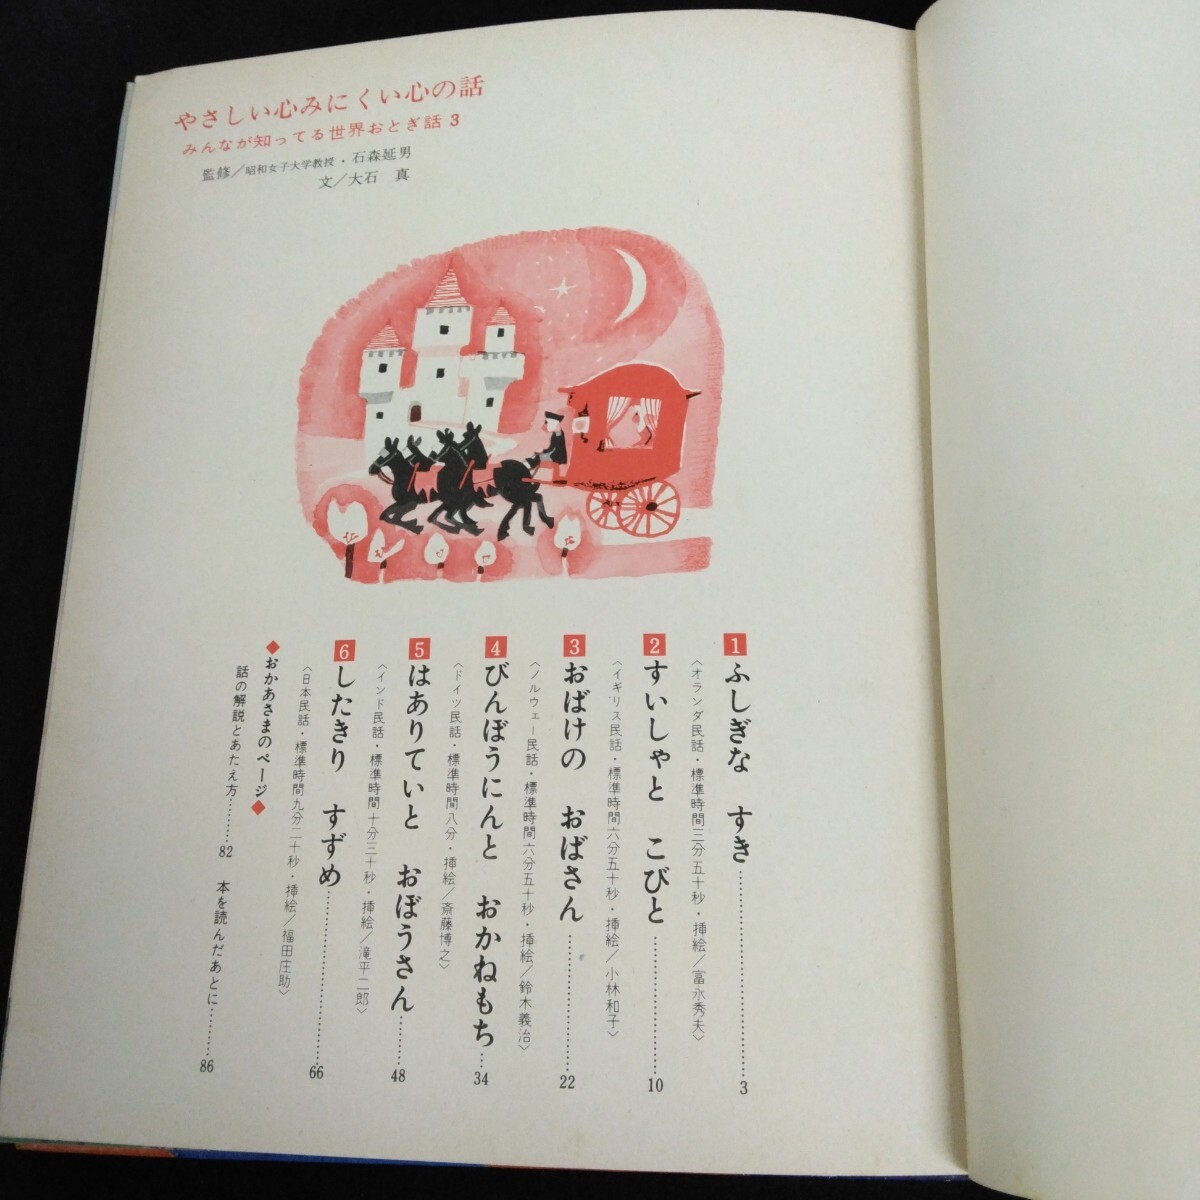 やさしい心みにくい心の話
みんなが知ってる世界おとぎ話 3
監修／昭和女子大学教授・石森延男
文／大石 真
1 ふしぎな すき………3
〈オランダ民話・標準時間三分五十秒・挿絵／富永秀夫〉
2 すいしゃと こびと………10
〈イギリス民話・標準時間六分五十秒・挿絵／小林和子〉
3 おばけの おばさん………22
〈ノルウェー民話・標準時間六分五十秒・挿絵／鈴木義治〉
4 びんぼうにんと おかねもち…34
〈ドイツ民話・標準時間八分・挿絵／斎藤博之〉
5 はありていと おぼうさん……48
〈インド民話・標準時間十分三十秒・挿絵／滝平二郎〉
6 したきり すずめ………66
〈日本民話・標準時間九分二十秒・挿絵／福田庄助〉
◆おかあさまのページ◆
話の解説とあたえ方………82 本を読んだあとに………86